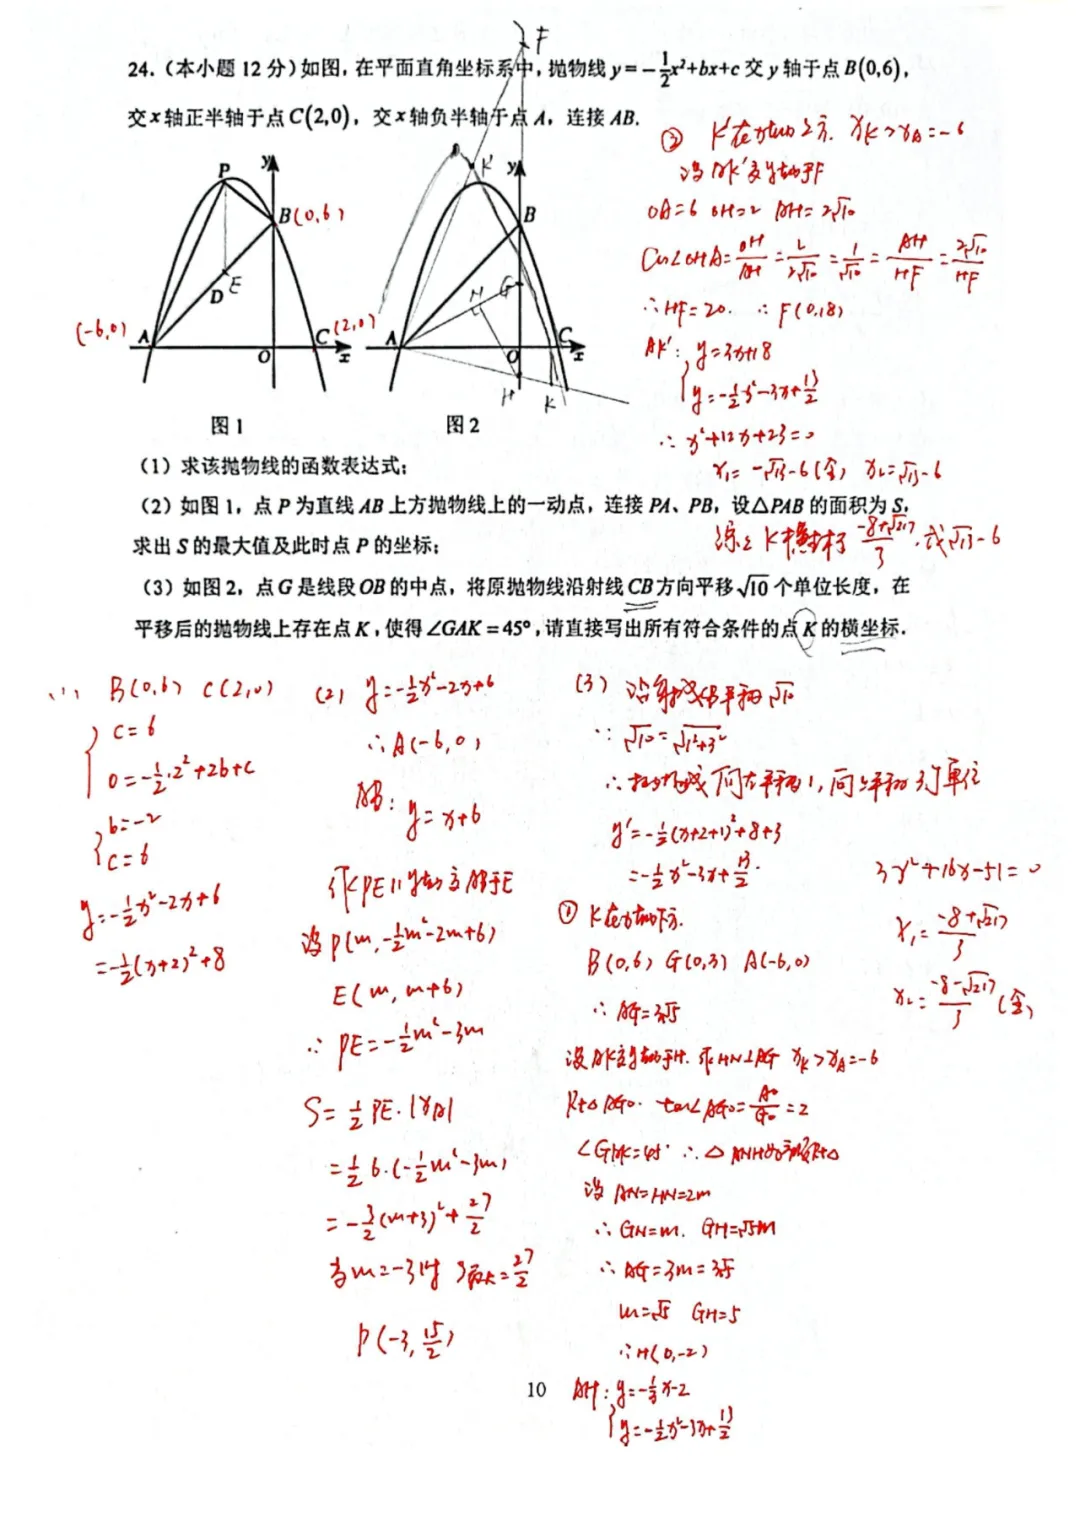 24.(本小题12分)如图,在平面直角坐标系中,抛物线y=-1/2x²+bx+c交y轴于点B(0,6),
交x轴正半轴于点C(2,0),交x轴负半轴于点A,连接AB.
F
P
y
B(0,6)
D
E
(-6,0)
A
O
C(2,0)
x
图1
K'
y
B
M
G
A
O
C
x
H
K
图2
② K'在x轴上方. x_K>x_A=-6
设AK'交y轴于F
OA=6 OH=2 AH=2√10
cos∠OHA=OH/AH=2/2√10=1/√10=AH/HF=2√10/HF
∴HF=20. ∴F(0,18)
AK': y=3x+18
y=-1/2x²-3x+13/2
∴x²+12x+23=0
x₁=-√13-6(舍) x₂=√13-6
综上K横坐标 (-8+√217)/3 或√13-6
(1)求该抛物线的函数表达式;
(2)如图1,点P为直线AB上方抛物线上的一动点,连接PA、PB,设△PAB的面积为S,
求出S的最大值及此时点P的坐标;
(3)如图2,点G是线段OB的中点,将原抛物线沿射线CB方向平移√10个单位长度,在
平移后的抛物线上存在点K,使得∠GAK=45°,请直接写出所有符合条件的点K的横坐标.
(1) B(0,6) C(2,0)
c=6
0=-1/2·2²+2b+c
b=-2
c=6
y=-1/2x²-2x+6
=-1/2(x+2)²+8
(2) y=-1/2x²-2x+6
∴A(-6,0)
AB: y=x+6
作PE∥y轴交AB于E
设P(m,-1/2m²-2m+6)
E(m,m+6)
∴PE=-1/2m²-3m
S=1/2PE·|x_A|
=1/2·6·(-1/2m²-3m)
=-3/2(m+3)²+27/2
当m=-3时 S最大=27/2
P(-3,15/2)
(3) 沿射线CB平移√10
∵√10=√(1²+3²)
∴抛物线向左平移1,向上平移3个单位
y'=-1/2(x+2+1)²+8+3
=-1/2x²-3x+13/2.
① K在x轴下方.
B(0,6) G(0,3) A(-6,0)
∴AG=3√5
设AK交y轴于H. 作HN⊥AG x_K>x_A=-6
Rt△AGO. tan∠AGO=AO/GO=2
∠GAK=45° ∴△ANH为等腰Rt△
设AN=HN=2m
∴GN=m. GH=√5m
∴AG=3m=3√5
m=√5 GH=5
∴H(0,-2)
AH: y=-1/3x-2
y=-1/2x²-3x+13/2
3x²+16x-51=0
x₁=(-8+√217)/3
x₂=(-8-√217)/3(舍)
10